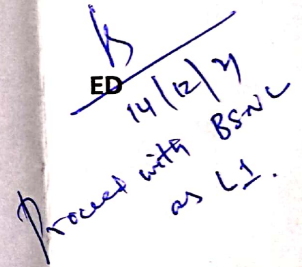 ED
14/12/21
Proceed with BSNL
as L1.